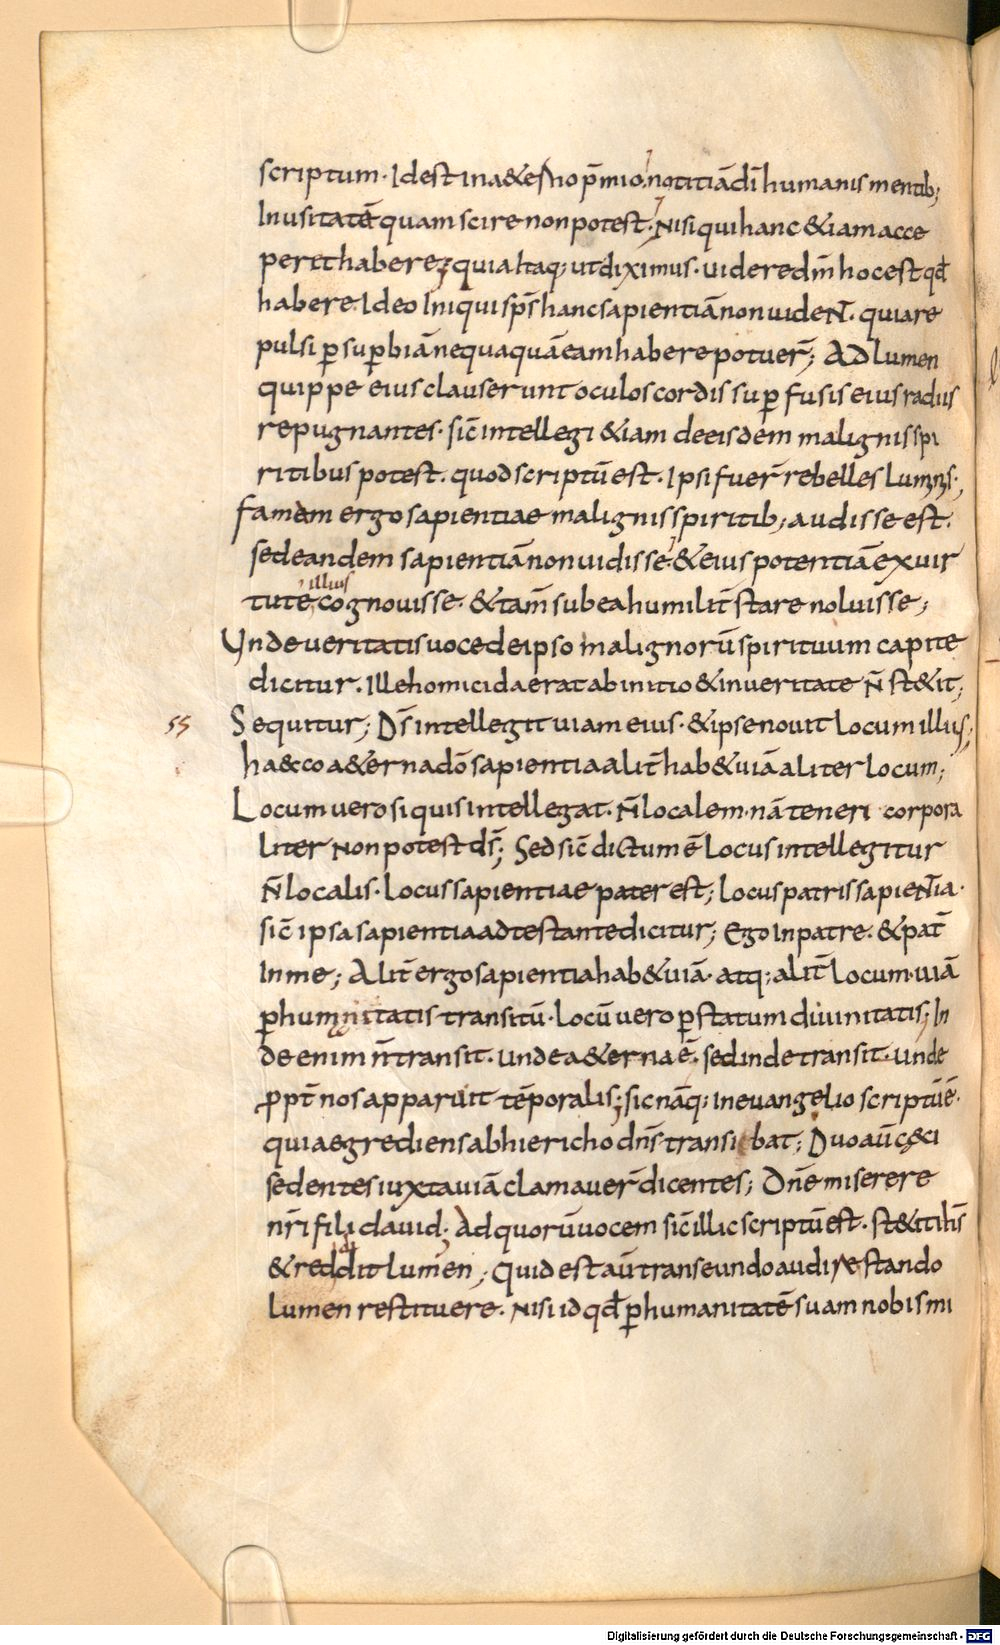 scriptum· Idest ina&erno p̄mio notitiā dī humanis mentib;
Inusitatē quam scire non potest. Nisi qui hanc &iam acce
perit habere; quia itaq; ut diximus· uidere dm̄ hoc est qđ
habere. Ideo Iniqui sps̄ hanc sapientiā non uideNT̄· quia re
pulsi p̱ sup̱biā nequaquā eam habere potuer̄; AD lumen
quippe eius clauserunt oculos cordis sup̱fusis eius radiis
repugnantes· sic̄ intellegi &iam de eisdem malignis spi
ritibus potest. quod scriptū est. Ipsi fuer̄ rebelles luminis;
famam ergo sapientiae malignis spiritib; audisse est.
sed eandem sapientiā non uidisse· & eius potentiā ex uir
tute illius cognouisse· & tam̄ sub ea humilit̄ stare noluisse;
Unde ueritatis uoce de ipso malignorū spirituum capite
dicitur. Ille homicida erat ab initio & in ueritate N̄ st&it;
55 Sequitur; Ds̄ intellegit uiam eius· & ipse nouit locum illius;
haec coa&erna dō sapientia alit̄ hab& uiā aliter locum;
Locum uero si quis intellegat· N̄ localem· nā teneri corpora
liter non potest ds̄; Sed sic̄ dictum ē Locus intellegitur
N̄ localis· Locus sapientiae pater est; locus patris sapieNTia·
sic̄ ipsa sapientia adtestante dicitur; Ego In patre· & pat̄
In me; Alit̄ ergo sapientia hab& uiā· atq; alit̄ locum· uiā
p̱ humanitatis transitū· locū uero p̱ statum diuinitatis; In
de enim n̄ transit· unde a&erna ē· sed inde transit· unde
ppt̄ nos apparuit tēporalis; sic nāq; in euangelio scriptū ē·
quia egrediens ab hiericho dn̄s transibat; Duo aūt c&ci
sedentes iuxta uiā clamauer̄ dicentes; Dn̄e miserere
nr̄i fili dauid; Ad quorū uocem sic̄ illic scriptū est· st&it ih̄s
& reddidit lumen; Quid est aū transeundo audire stando
lumen restituere· nisi id qđ p̱ humanitatē suam nobis mi
Digitalisierung gefördert durch die Deutsche Forschungsgemeinschaft - DFG